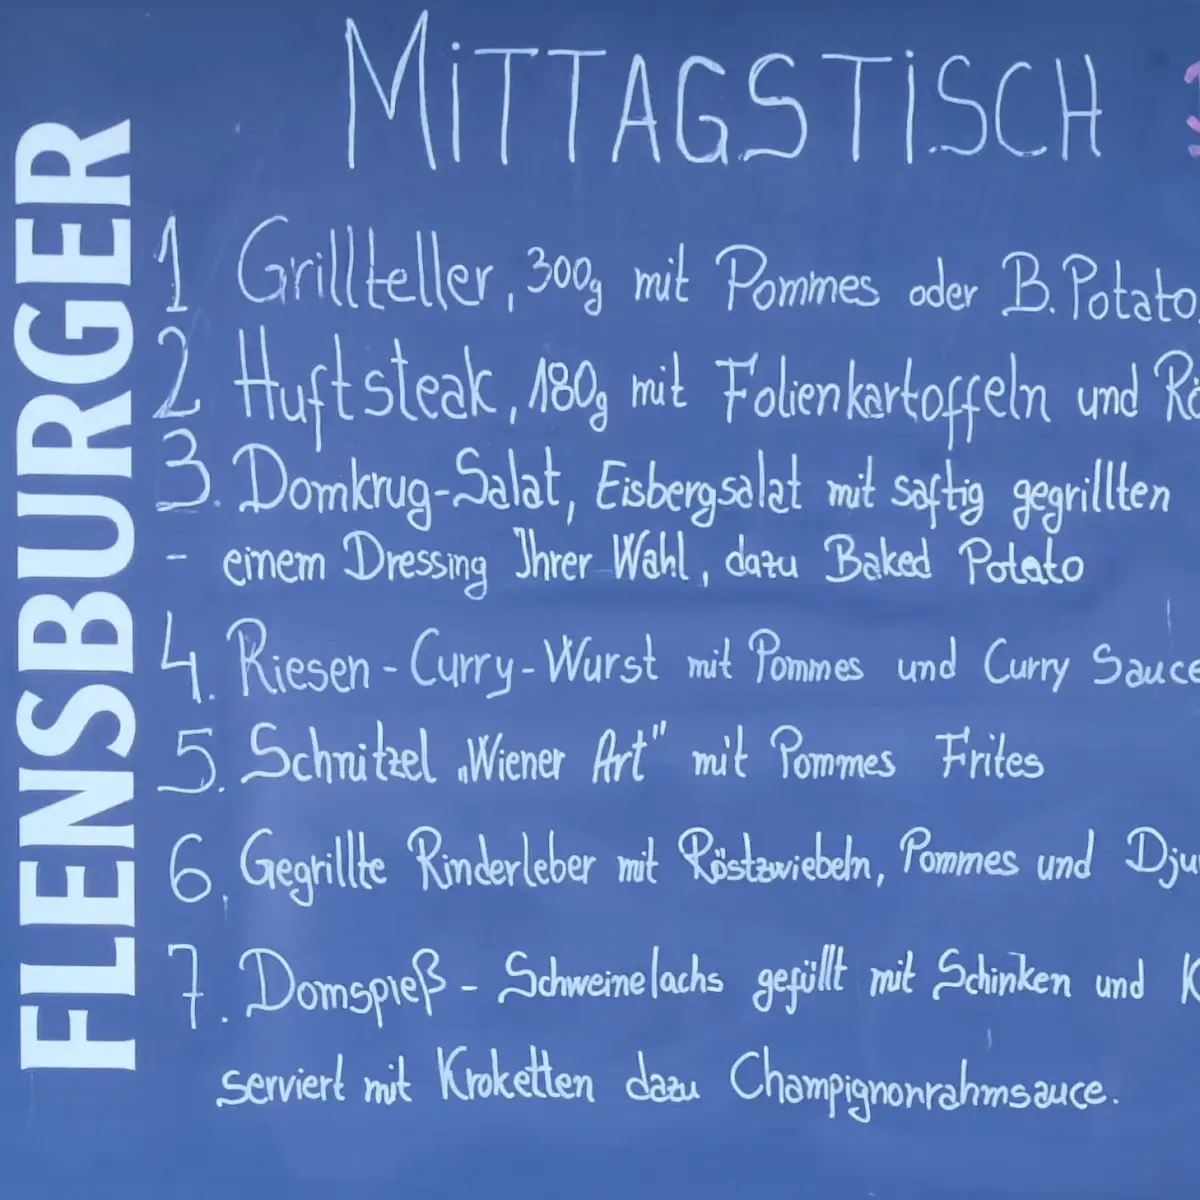 FLENSBURGER
MiTTAGSTiSCH
1 Grillteller, 300g mit Pommes oder B. Potato,
2 Huftsteak, 180g mit Folienkartoffeln und Rö
3. Domkrug-Salat, Eisbergsalat mit saftig gegrillten
- einem Dressing Ihrer Wahl, dazu Baked Potato
4. Riesen-Curry-Wurst mit Pommes und Curry Sauce
5. Schnitzel „Wiener Art" mit Pommes Frites
6. Gegrillte Rinderleber mit Röstzwiebeln, Pommes und Dju
7. Domspieß - Schweinelachs gefüllt mit Schinken und K
serviert mit Kroketten dazu Champignonrahmsauce.